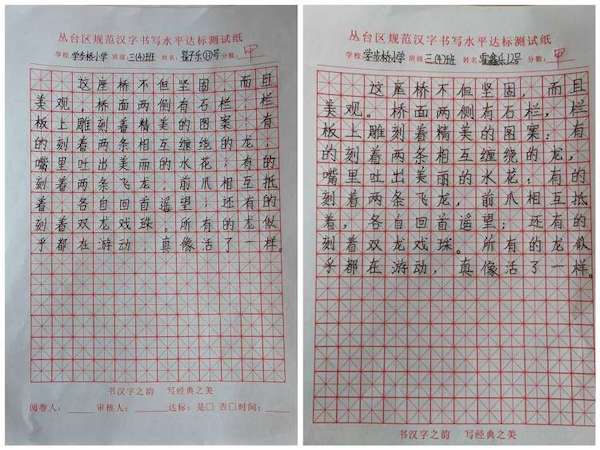 丛台区规范汉字书写水平达标测试纸
学校:学步桥小学 班级 三(4)班 姓名: 分数: 甲
这座桥不但坚固,而且
美观,桥面两侧有石栏,栏
板上雕刻着精美的图案:有
的刻着两条相互缠绕的龙,
嘴里吐出美丽的水花;有的
刻着两条飞龙,前爪相互抵
着,各自回首遥望;还有的
刻着双龙戏珠,所有的龙似
乎都在游动,真像活了一样。
书汉字之韵 写经典之美
阅卷人: 审核人: 达标:是□ 否□ 时间:
丛台区规范汉字书写水平达标测试纸
学校:学步桥小学 班级 三(4)班 姓名 12号 分数: 甲
这座桥不但坚固,而且
美观。桥面两侧有石栏,栏
板上雕刻着精美的图案:有
的刻着两条相互缠绕的龙,
嘴里吐出美丽的水花;有的
刻着两条飞龙,前爪相互抵
着,各自回首遥望;还有的
刻着双龙戏珠。所有的龙似
乎都在游动,真像活了一样。
书汉字之韵 写经典之美